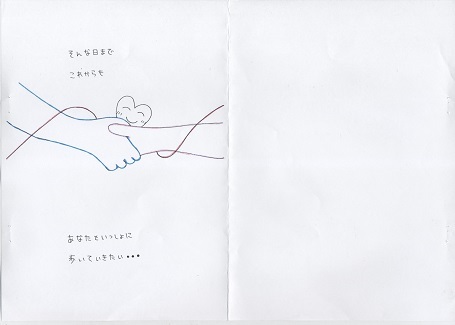 そんな日まで
これからも
あなたといっしょに
歩いていきたい•••